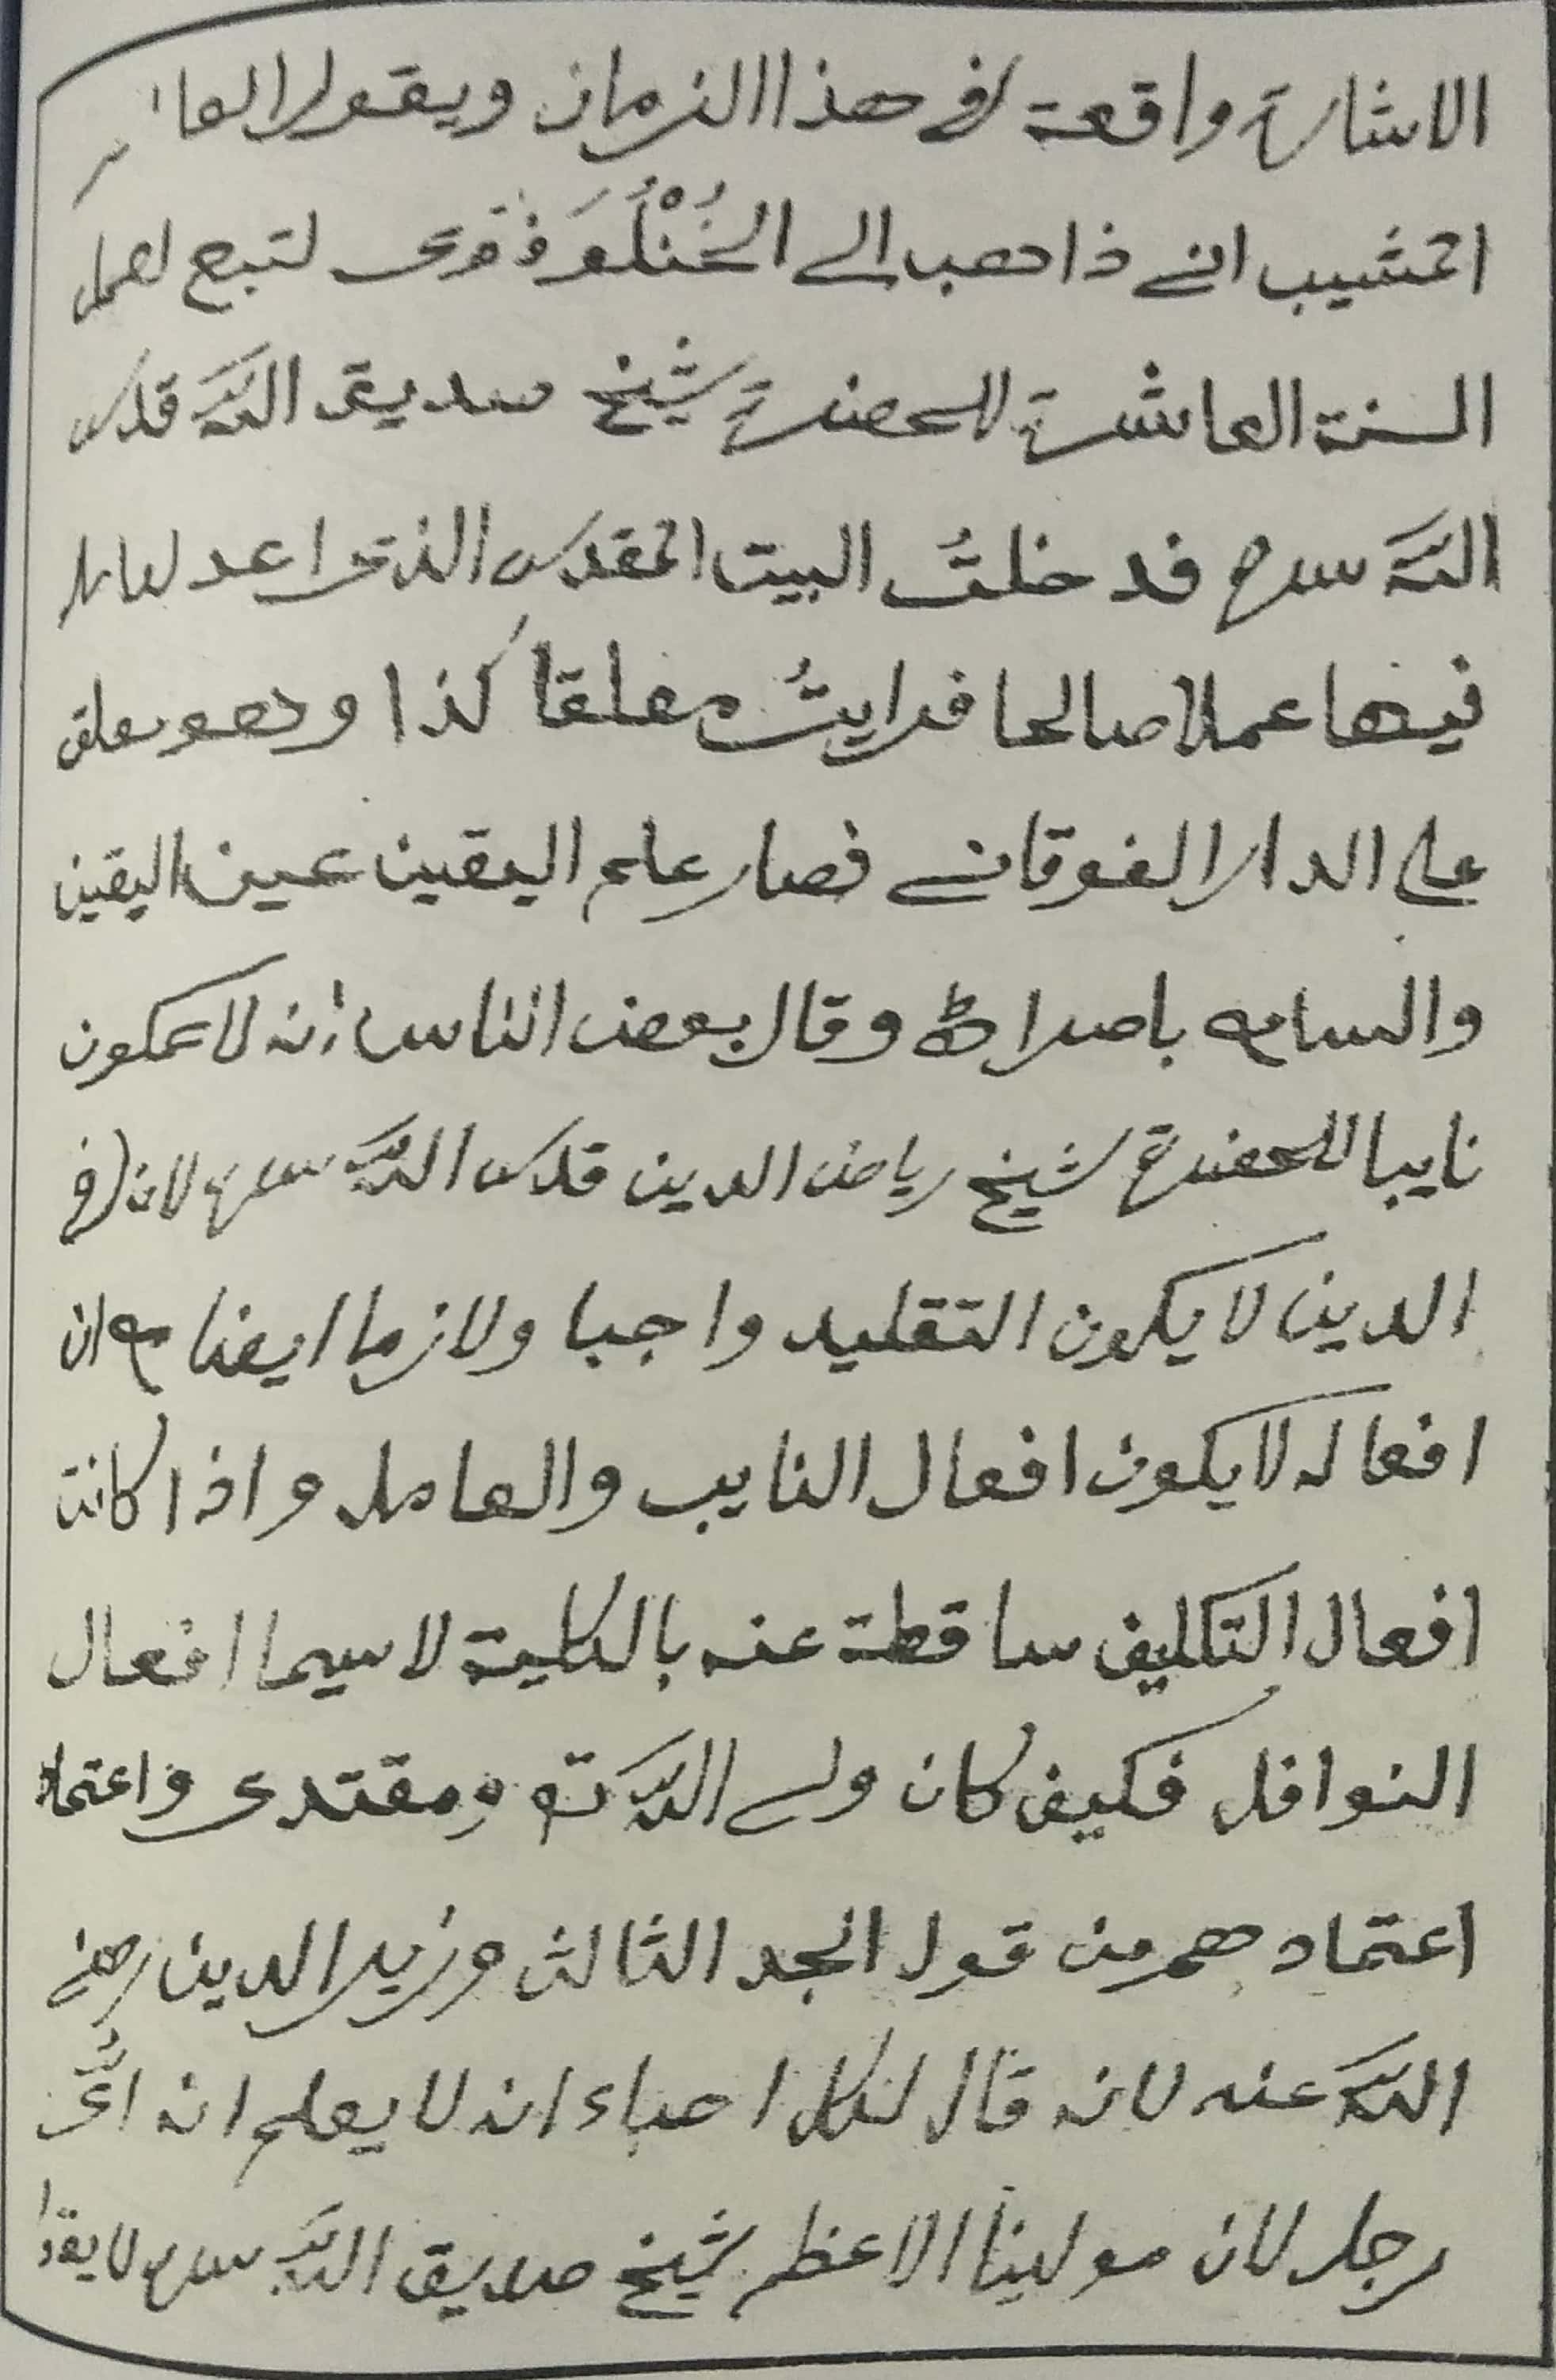 الاشارة واقعة في هذا الزمان ويقول العا
المشيب اني ذاهب الى الخُنْلُوَ فوقى لتبع لعمل
السنة العاشرة للحضرة شيخ سديق اللّٰه قدس
اللّٰه سره فدخلتُ البيت المقدس الذى اعد
فيها عملا صالحا فرايتُ معلقا كذا وهو معلق
على الدار الفوقاني فصار علم اليقين عين اليقين
وقال بعض الناس انه لا يمكون
نايبا للحضرة شيخ رياض الدين قدس اللّٰه سره لان في
الدين لا يكون التقليد واجبا ولازما ايضا مع ان
افعاله لا يكون افعال النايب والعامل واذا كانت
افعال التكليف ساقطة عنه بالكلية لا سيما افعال
النوافل فكيف كان ولي اللّٰه تع ومقتدى واعتماد
اعتمادهم من قول الجد الثالث وزير الدين رضي
اللّٰه عنه لانه قال لكل احباء انه لا يعلم انه اىُّ
رجل لان مولينا الاعظم شيخ صديق اللّٰه سره لا يقرا